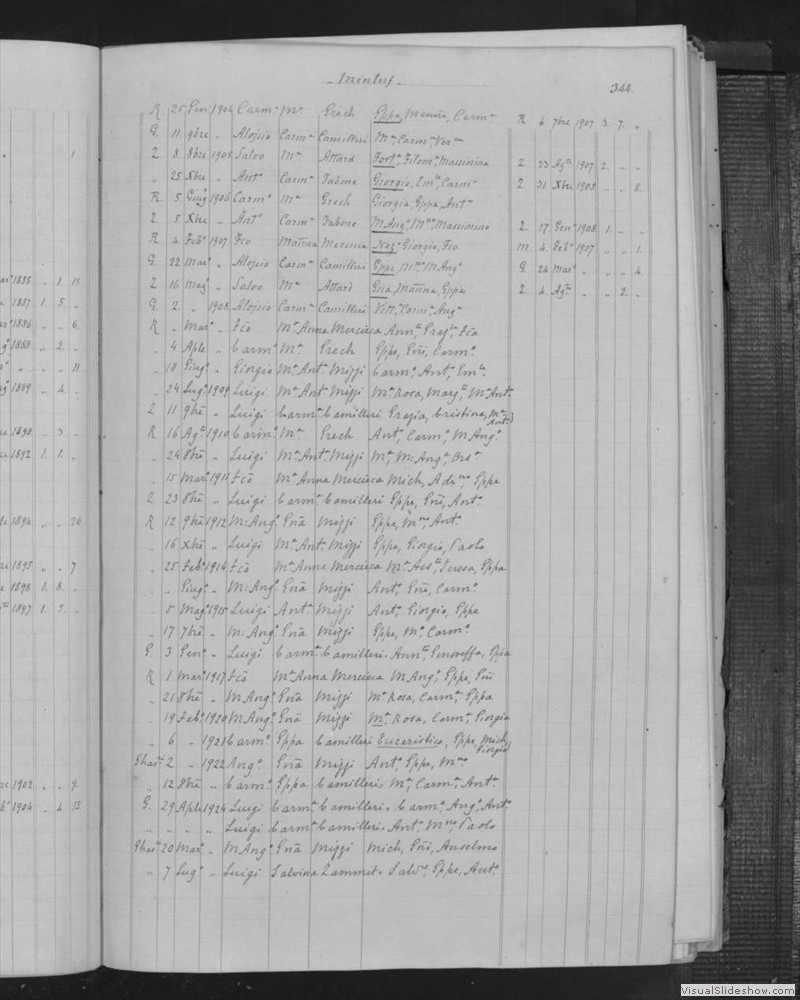 Mintuf
344.
R 25 Gen: 1904 Carmo Ma Grech Gppa, Manna, Carma R 6 7bre 1907 3. 7. „
G. 11 9bre „ Aloisio Carma Camilleri Ma, Carma, Vera
Z 8 8bre 1905 Salvo Ma Attard Forta, Filoma, Massimina Z 23 Agto 1907 2. „
„ 25 Xbre „ Anto Carma Tabone Giorgio, Eml, Carmo Z 31 Xbre 1905 „ „ 8.
R. 5 Giugo 1906 Carmo Ma Grech Giorgia, Gppa, Anta
Z 5 Xbre „ Anto Carma Tabone M. Ango, Mno, Massimino Z 17. Geno 1908 1. „ „
R. 4 Febo 1907 Fco Manna Mercieca Naz: Giorgio, Fco M. 4 Febo 1907 „ „ 1.
G 22 Maro „ Aloisio Carma Camilleri Gppe, Mno, M Ango G. 24 Maro „ „ „ 4.
Z 16 Mago „ Salvo Ma Attard Gna, Manna, Gppa Z 4 Agto „ „ 2. „
G 2 „ 1908 Aloisio Carma Camilleri Vitta, Carma, Anga
R „ Maro „ Fco Ma Anna Mercieca
„ 4 Aple „ Carmo Ma Grech Gppe, Gni, Carmo
„ 18 Giugo „ Giorgio Ma Anta Mizzi Carmo, Anto, Eml
„ 24 Lugo 1909 Luigi Ma Anta Mizzi Ma Rosa, Marga, Ma Anta
Z 11 9bre „ Luigi Carma Camilleri Grazia, Cristina, Ma Anta
R 16 Agto 1910 Carmo Ma Grech Anto, Carmo, M Ango
„ 24 8bre „ Luigi Ma Anta Mizzi Ma, M: Anga, Orsa
„ 15 Maro 1911 Fco Ma Anna Mercieca Mich, Adrno, Gppe
Z 23 8bre „ Luigi Carma Camilleri Gppe, Gni, Anto
R 12 9bre 1912 M: Ango Gna Mizzi Gppe, Mno, Anto
„ 16 Xbre „ Luigi Ma Anta Mizzi Gppe, Giorgio, Paolo
„ 25 Febo 1914 Fco Ma Anna Mercieca Ma Assta, Teresa, Gppa
„ „ Giugo „ M: Ango Gna Mizzi Anto, Gni, Carmo
„ 5 Mago 1915 Luigi Anta Mizzi Anto, Giorgio, Gppe
„ 17 7bre „ M: Ango Gna Mizzi Gppa, Ma, Carma
G. 3 Geno „ Luigi Carma Camilleri Anna, Genoveffa, Gppa
R 1 Maro 1917 Fco Ma Anna Mercieca M Ango, Gppe, Gni
„ 21 8bre „ M Ango Gna Mizzi Ma Rosa, Carma, Gppa
„ 19 Febo 1920 M Ango Gna Mizzi Ma Rosa, Carma, Giorgia
„ 6 „ 1921 Carmo Gppa Camilleri Eucaristico, Gppe, Mich, Giorgio
Ghasri 2 „ 1922 Ango Gna Mizzi Anto, Gppe, Mno
„ 12 8bre „ Carmo Gppa Camilleri Ma, Carma, Anta
G. 29 Aple 1924 Luigi Carma Camilleri Carmo, Ango, Anto
„ „ „ „ Luigi Carma Camilleri Anto, Mno, Paolo
Ghasri 20 Maro „ M Ango Gna Mizzi Mich, Gni, Anselmo
„ 7 Lugo „ Luigi Salvina Zammit Salvre, Gppe, Anto
1885 „ 1. 15
1887 1. 5. „
1886 „ „ 6
1888 „ 2. „
„ „ 11
1889 „ 4. „
1890 „ 3. „
1892 1. 1. „
1894 „ „ 20
1895 „ „ 7
1898 1. 8. „
1897 1. 5. „
1902 „ „ 9
1904 „ 4 13
VisualSlideshow.com